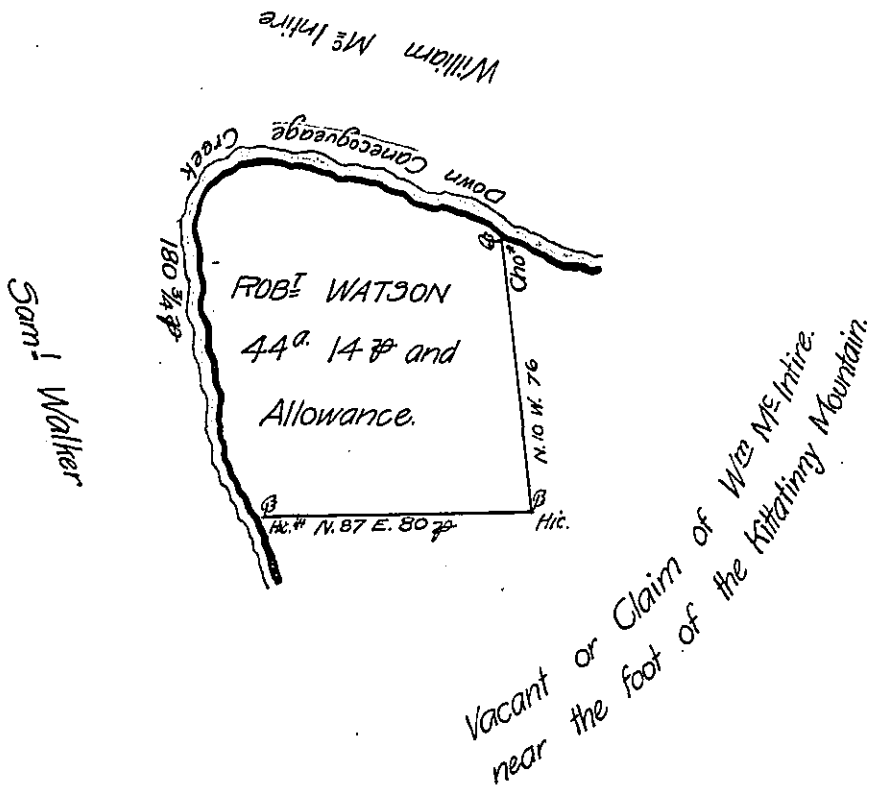 William Mc Intire
Down Canecogveage Creek
180 3/4 p
Sam.l Walker
ROB.T WATSON
44a. 14 p and
Allowance.
Cho*
N.10 W. 76
Hic.# N.87 E. 80 p
Hic.
Vacant or Claim of Wm Mc Intire.
near the foot of the Kittatinny Mountain.